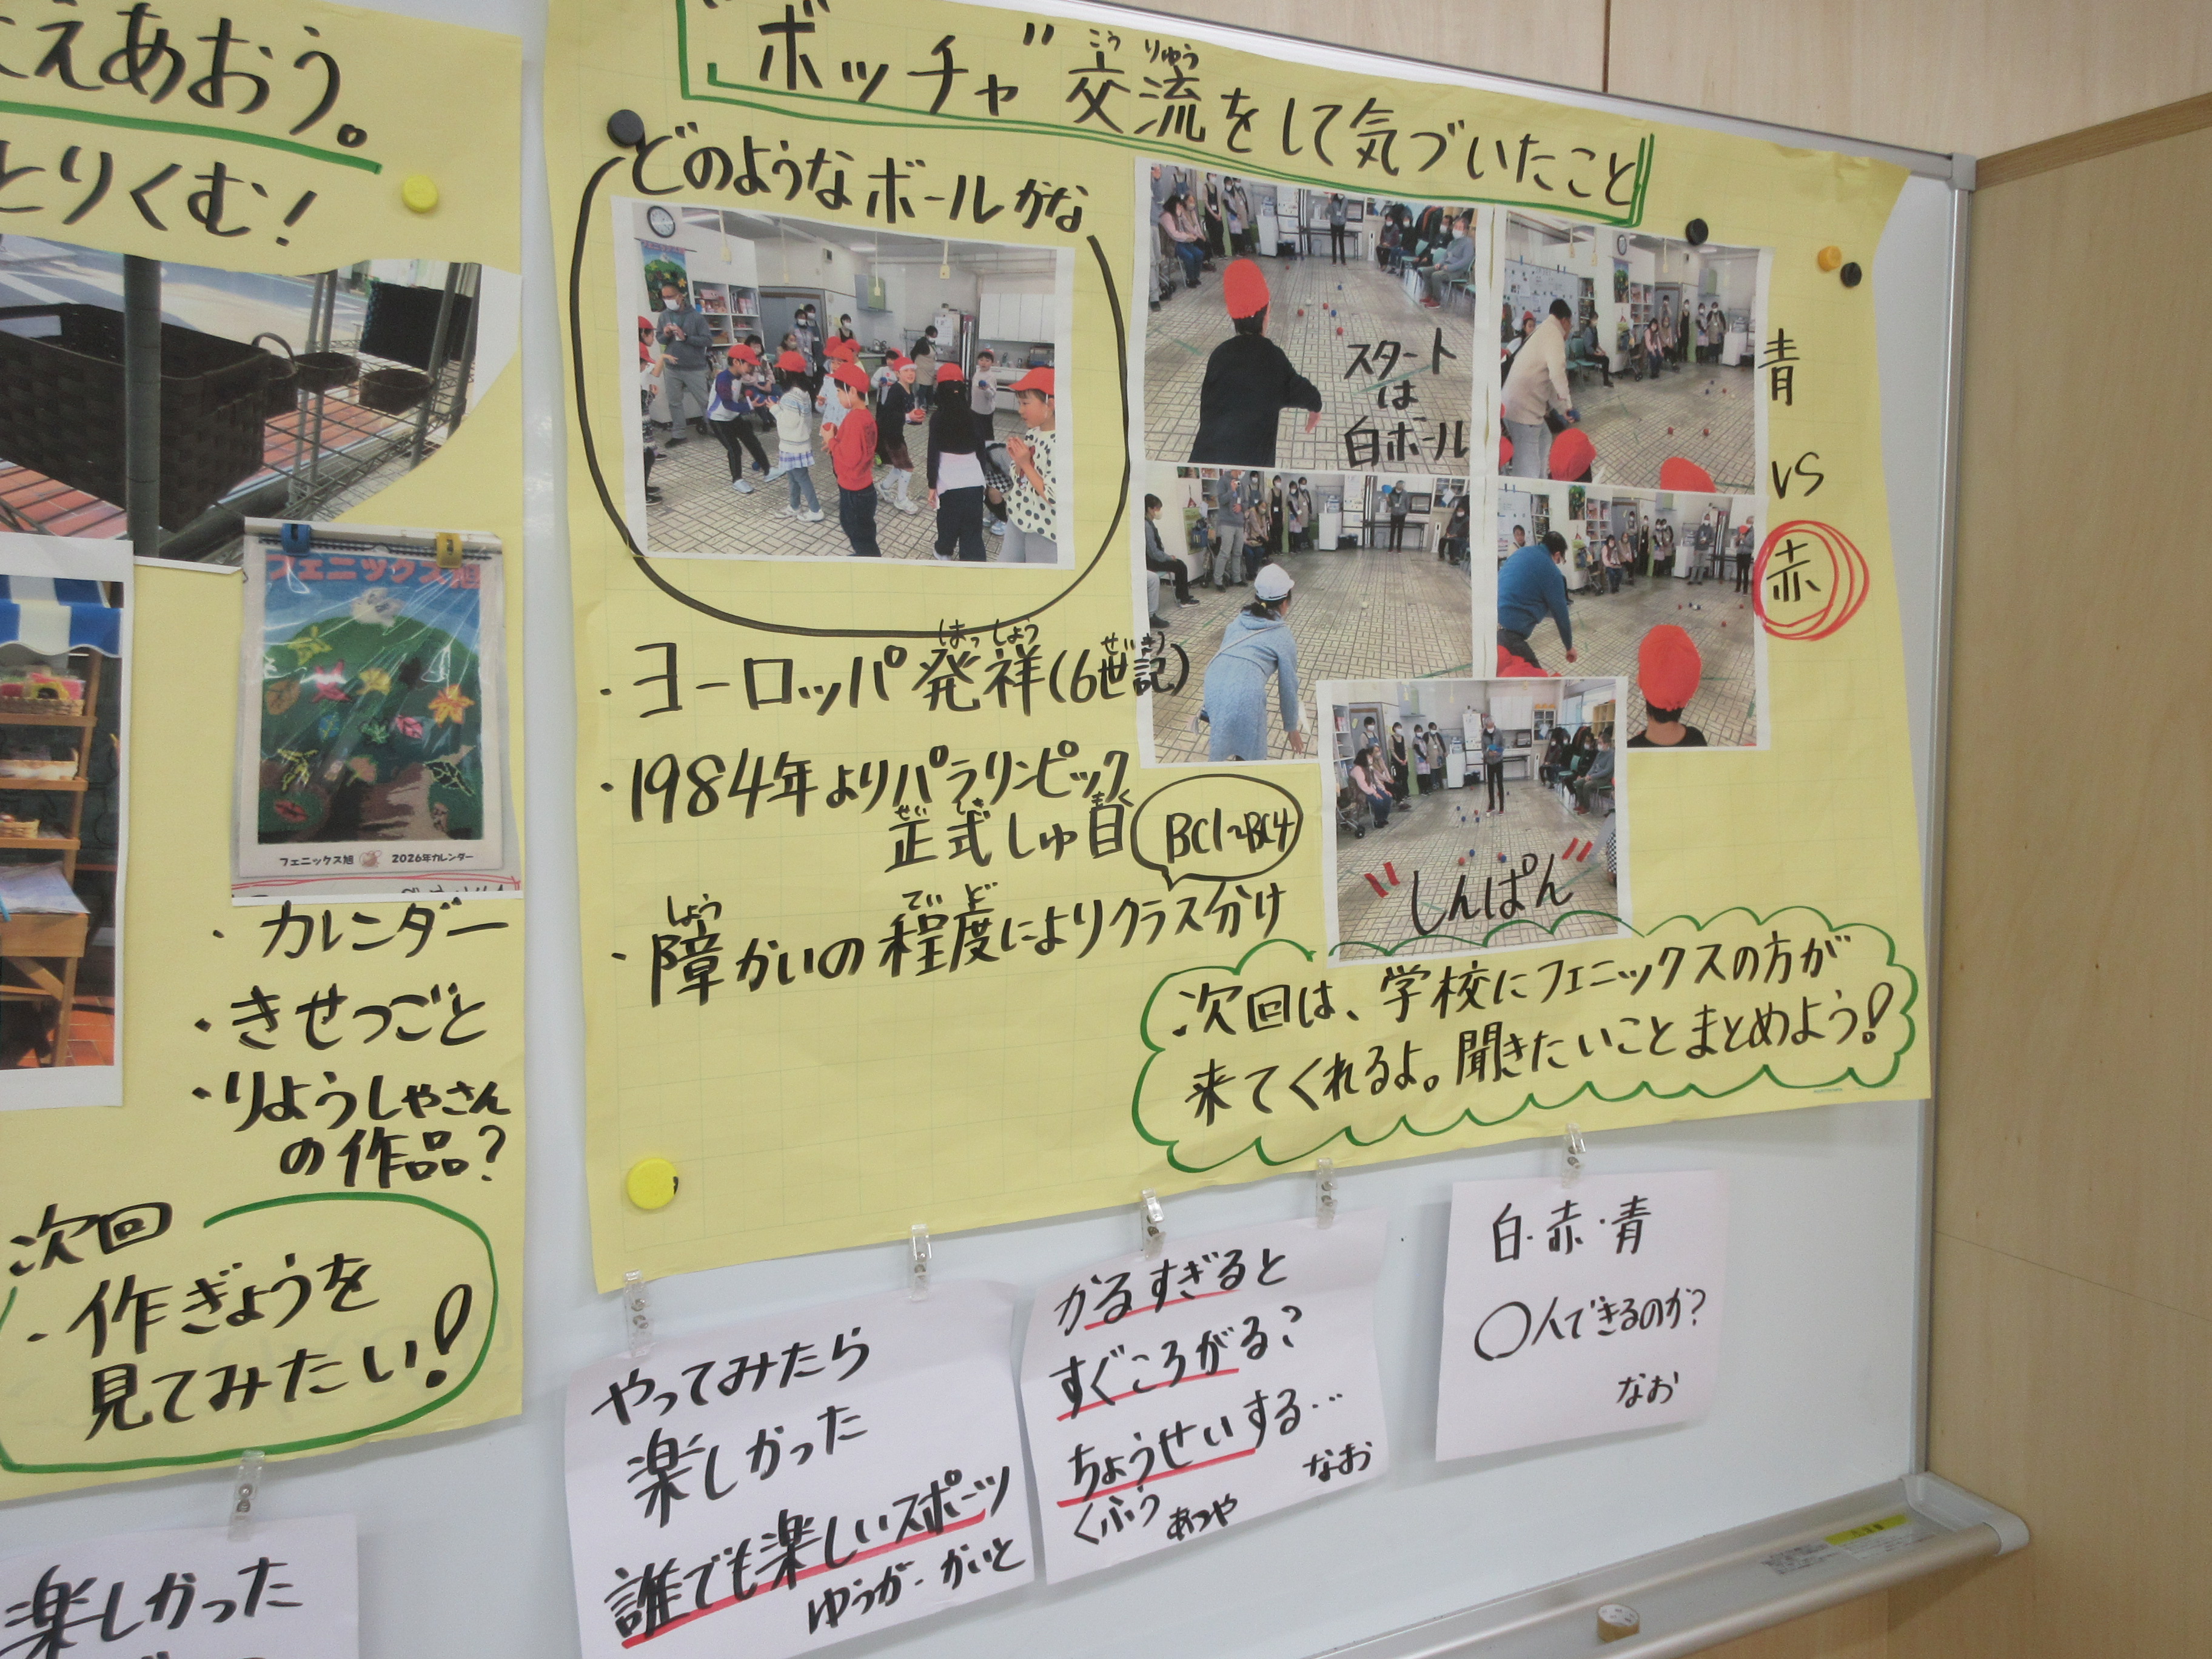 えあおう。
とりくむ!
フェニックス旭
フェニックス旭 2026年カレンダー
・カレンダー
・きせつごと
・りようしゃさん
の作品?
次回
・作ぎょうを
見てみたい!
楽しかった
"ボッチャ"交流をして気づいたこと
こう りゅう
どのようなボールかな
スタート
は
白ボール
青
vs
赤
はっ しょう せい き
・ヨーロッパ発祥(6世記)
・1984年よりパラリンピック
せい しき もく
正式しゅ目
BC1~BC4
しょう てい ど
・障がいの程度によりクラス分け
"しんぱん"
次回は、学校にフェニックスの方が
来てくれるよ。聞きたいことまとめよう!
やってみたら
楽しかった
誰でも楽しいスポーツ
ゆうが・かいと
かるすぎると
すぐころがる?
ちょうせいする…
くふう あつや
なお
白・赤・青
〇人でできるのか?
なお